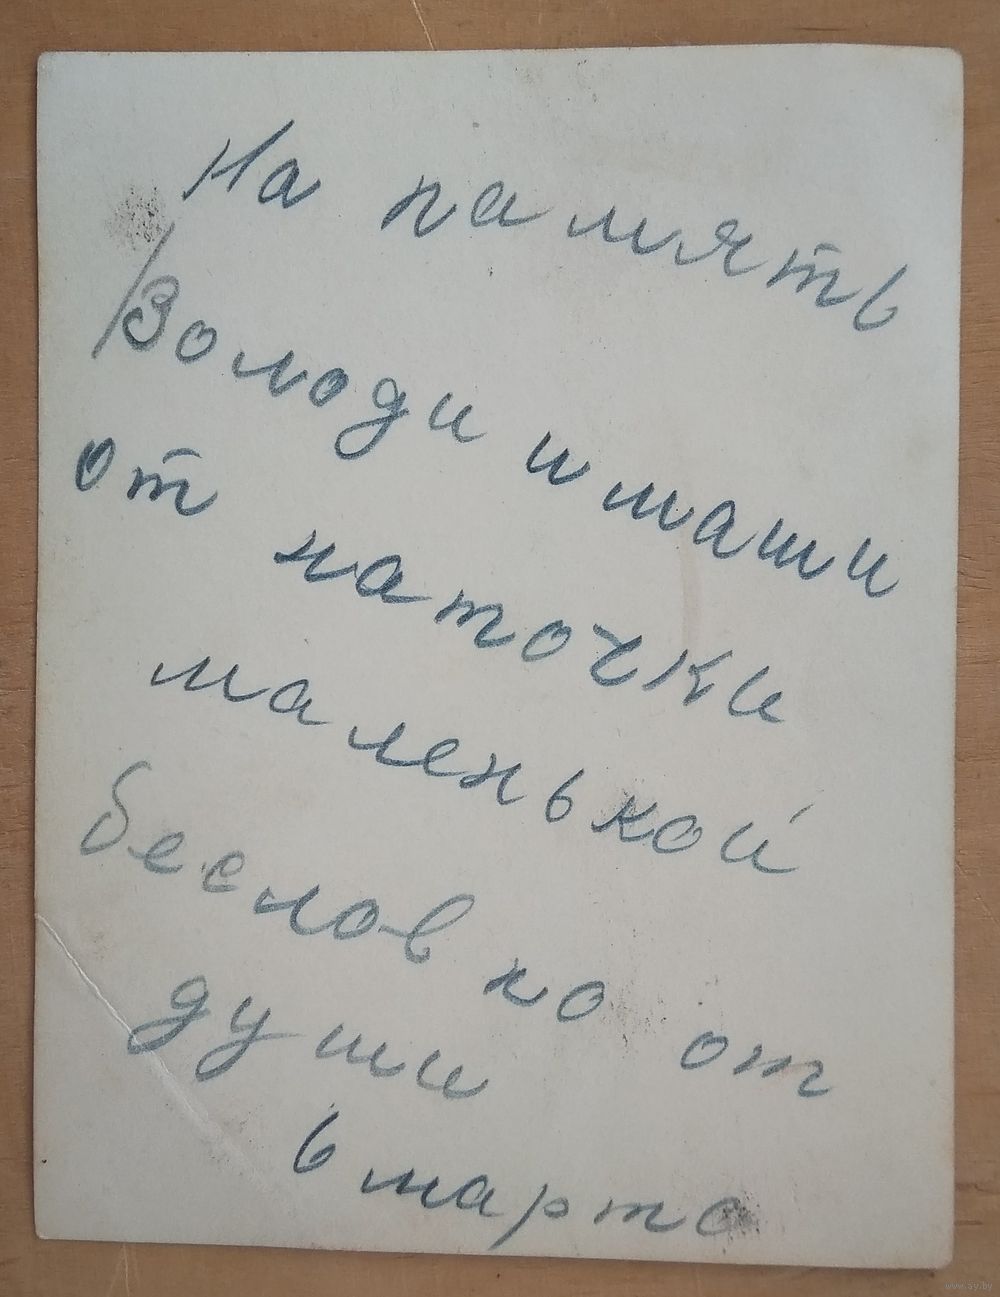 На память
Володи и маши
от наточки
маленькой
беслов но от
души
6 марта
www.ay.by